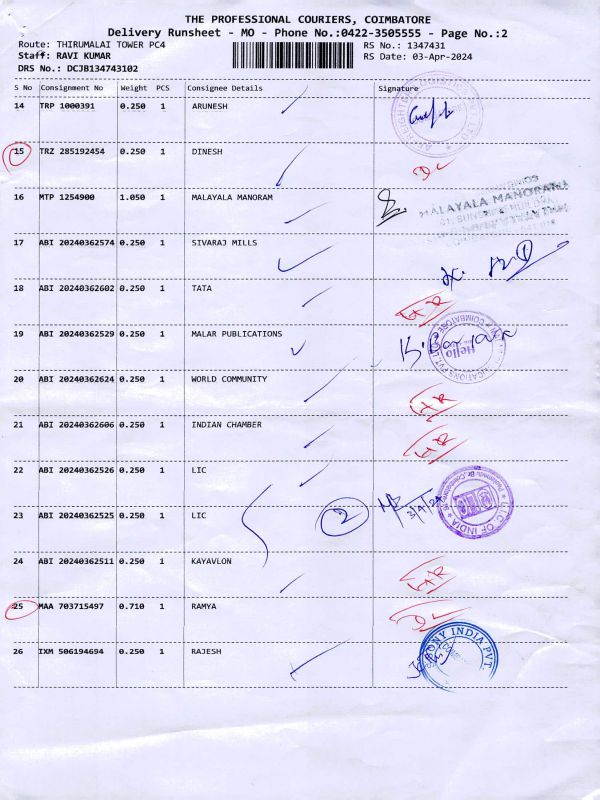 THE PROFESSIONAL COURIERS, COIMBATORE
Delivery Runsheet - MO - Phone No.:0422-3505555 - Page No.:2
Route: THIRUMALAI TOWER PC4 RS No.: 1347431
Staff: RAVI KUMAR RS Date: 03-Apr-2024
DRS No.: DCJB134743102
S No Consignment No Weight PCS Consignee Details Signature
14 TRP 1000391 0.250 1 ARUNESH
15 TRZ 285192454 0.250 1 DINESH
DL
16 MTP 1254900 1.050 1 MALAYALA MANORAM
MALAYALA MANORAMA
17 ABI 20240362574 0.250 1 SIVARAJ MILLS
18 ABI 20240362602 0.250 1 TATA
19 ABI 20240362529 0.250 1 MALAR PUBLICATIONS
Hello
20 ABI 20240362624 0.250 1 WORLD COMMUNITY
21 ABI 20240362606 0.250 1 INDIAN CHAMBER
22 ABI 20240362526 0.250 1 LIC
23 ABI 20240362525 0.250 1 LIC
2 3/4/24
L.I.C. OF INDIA
24 ABI 20240362511 0.250 1 KAYAVLON
25 MAA 703715497 0.710 1 RAMYA
DL
26 IXM 506194694 0.250 1 RAJESH
SONY INDIA PVT